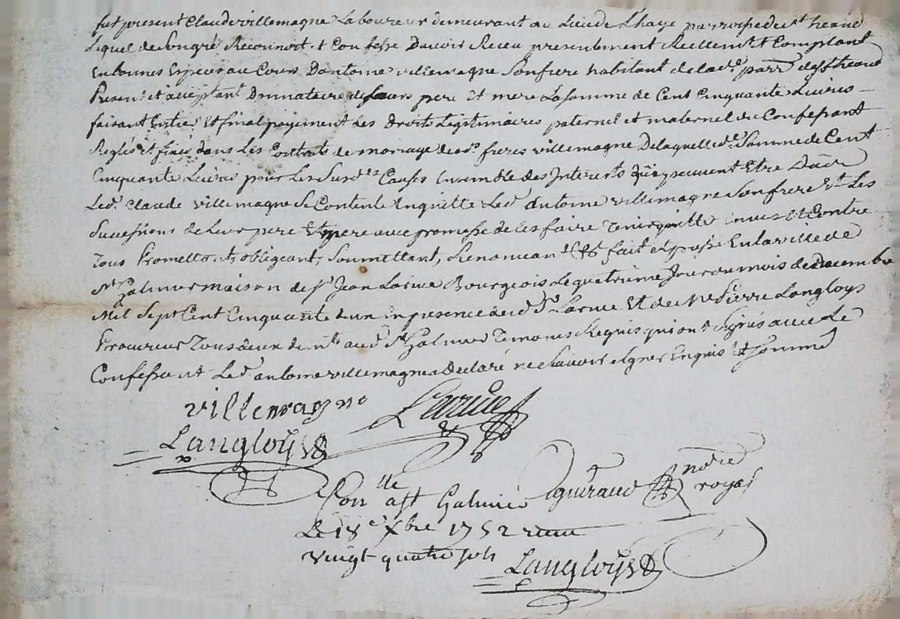 fut present Claude villemagne Laboureur demeurant au Lieu de L'haye parroisse de st heand
Lequel de Son gré Reconnoit et Confesse Davoir Receu presentement Reellemt et Comptant
En bonnes Especes au Cours D'antoine villemagne Son frere habitant de lad. parr. de st heand
Present et acceptant Donnataire de feus pere et mere La somme de Cent Cinquante Livres
faisant Entier Et final payement des Droits Legitimaires paternel et maternel du Confessant
Reglés et fixés dans Les Contrat de mariage desd. freres villemagne De laquelle de Somme de Cent
Cinquante Livres pour Les Susd. Causes Ensemble des Interests qui peuvent Etre Dûs
Led. Claude villemagne Se Contente En quitte Led. antoine villemagne Son frere Et Les
Successions de Leur pere Et mere avec promesse de Les faire Tenir quitte Envers Et Contre
Tous Promettant, obligeant, Soumettant, Renonceant &c fait et passé En la ville de
St Galmier maison de Sr Jean Larue Bourgeois Le quatrieme Jour du mois de Decembre
Mil Sept Cent Cinquante deux En presence dud. Sr Larue Et de Me Pierre Langloys
Procureur Tous deux de aud. St Galmier Temoins Requis qui ont Signés avec Le
Confessant Led. antoine villemagne a Declaré ne Sçavoir Signer Enquis Et Sommé
villemagne Larue
Langloys
guiraud nore royal
Conlle a St Galmier
Le 18e Xbre 1752 recu
vingt quatre sols
Langloys